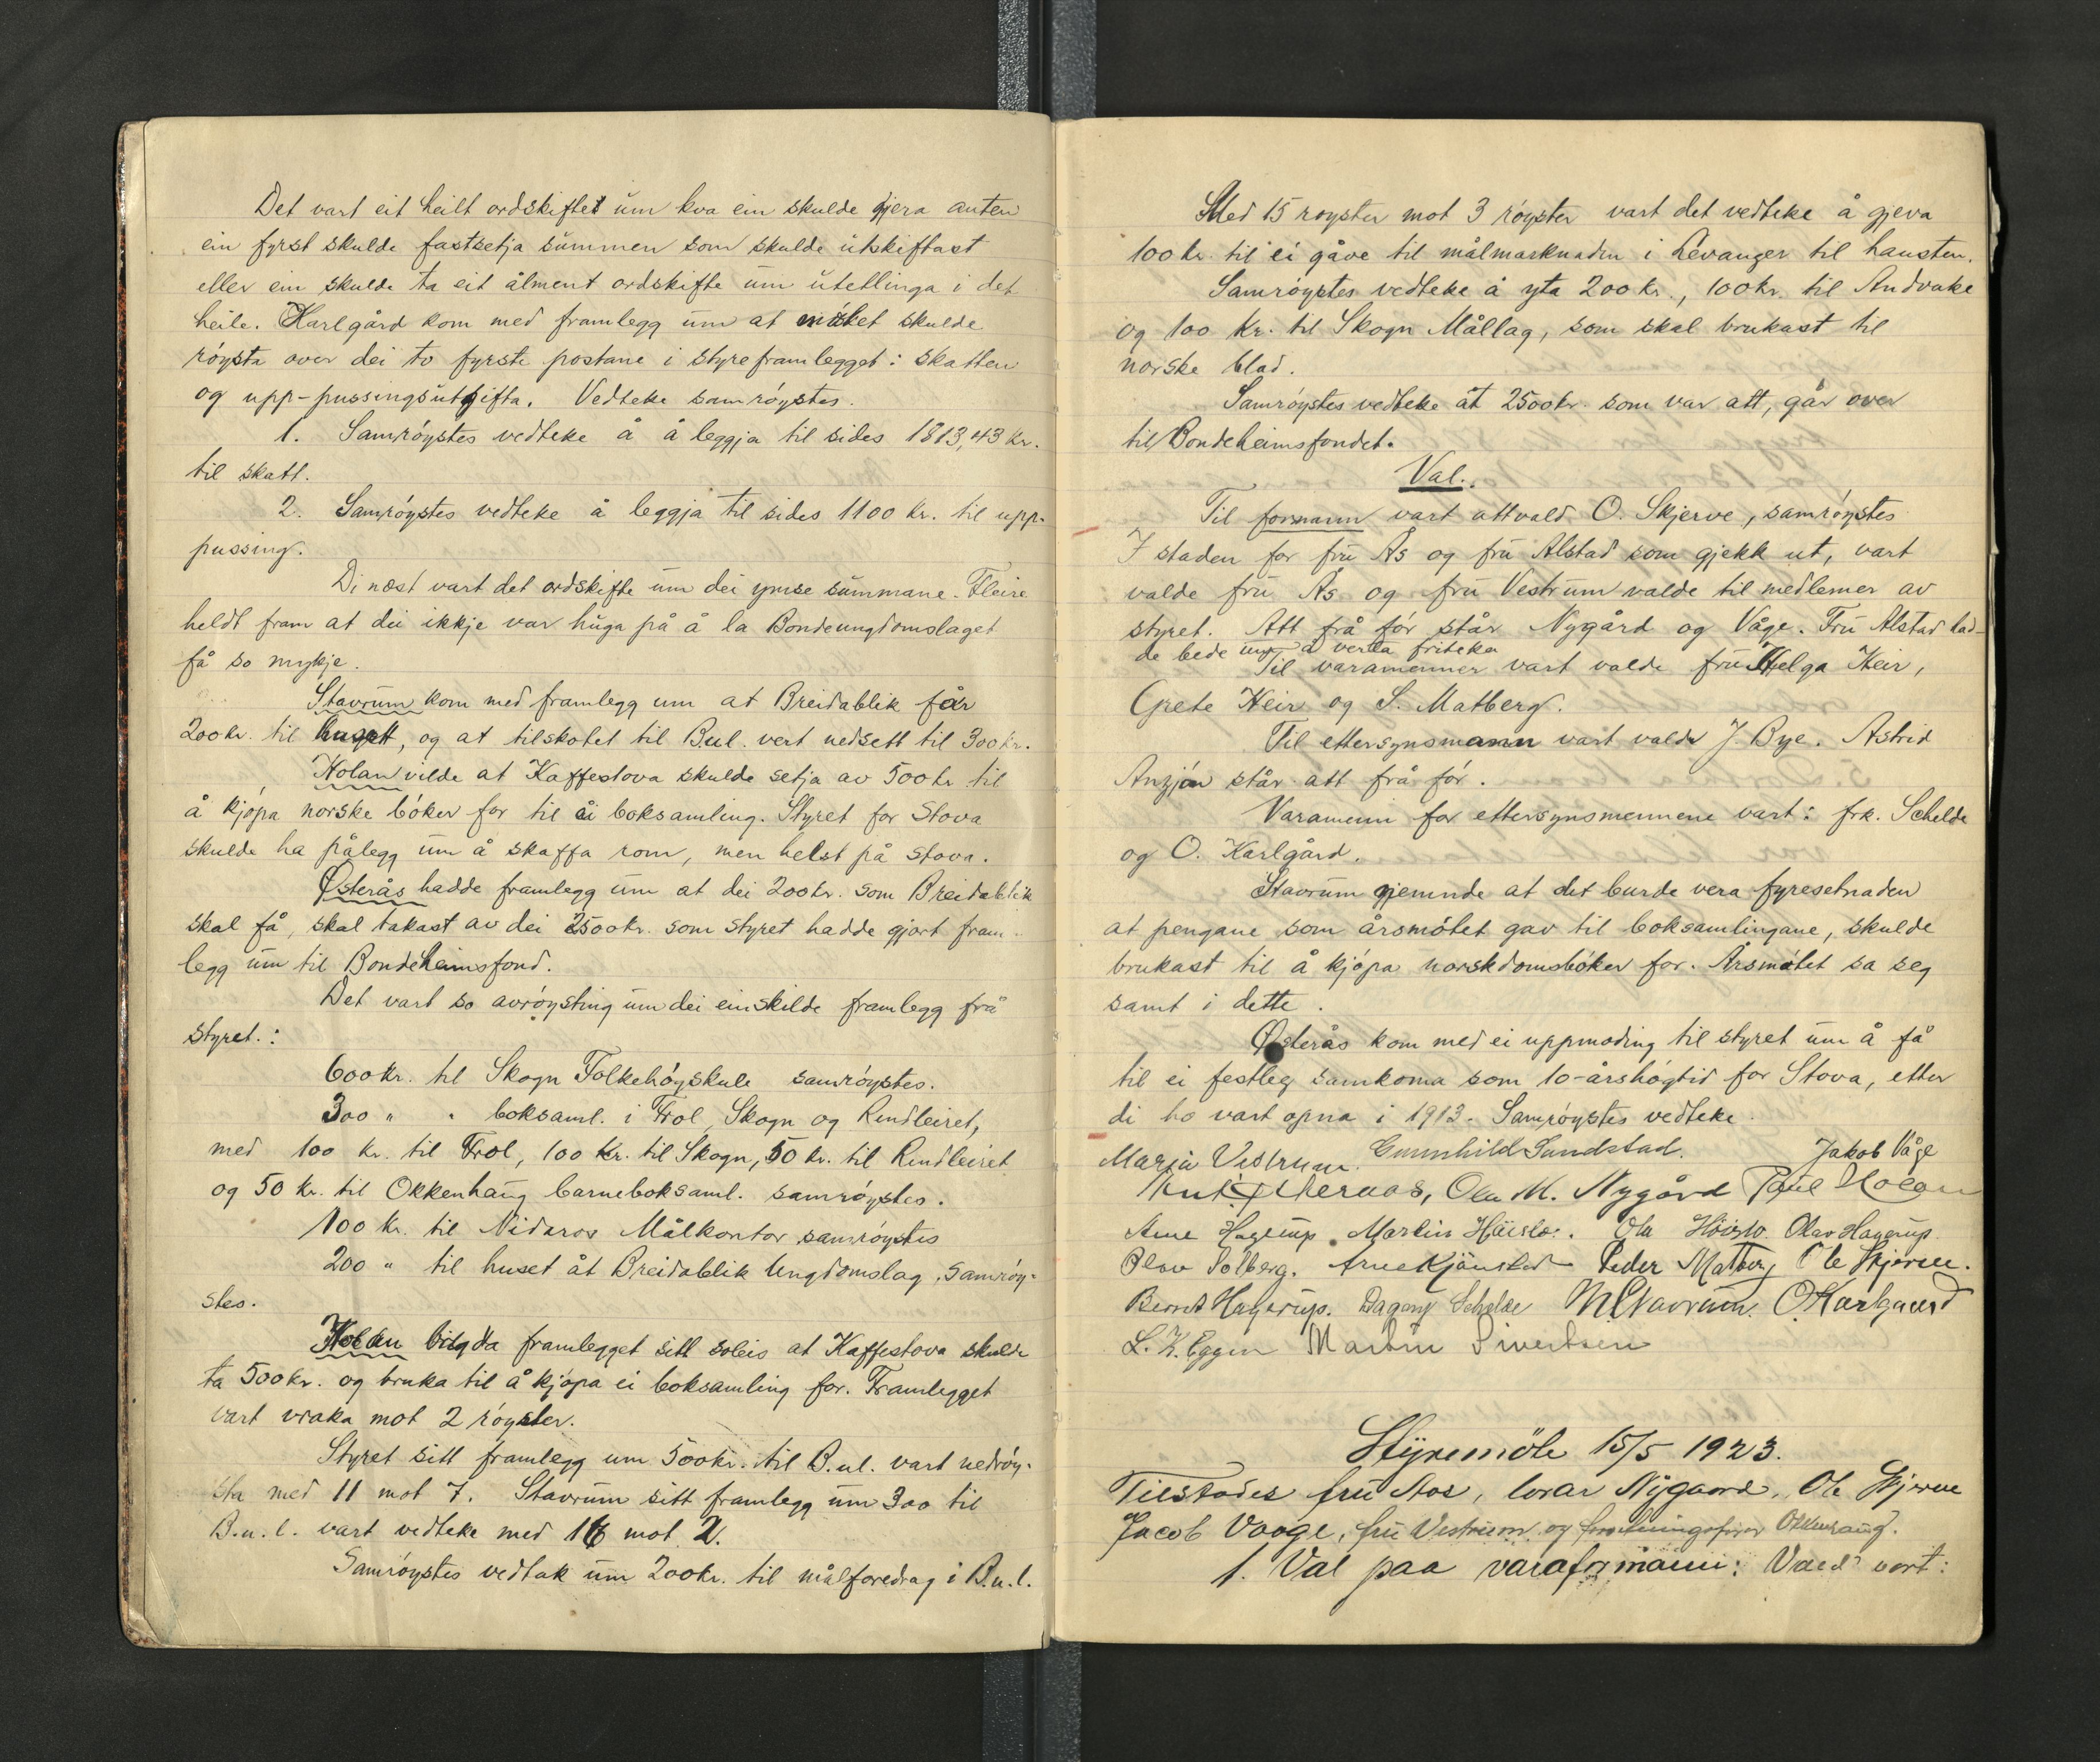 Det vart eit heilt ordskiftet um kva ein skulde gjera anten
ein fyrst skulde fastsetja summen som skulde utskiftast
eller ein skulde ta eit ålment ordskifte um utetlinga i det
heile. Karlgård kom med framlegg um at møtet skulde
røysta over dei to fyrste postane i styreframlegget: skatten
og upp-pussingsutgifta. Vedteke samrøystes.
1. Samrøystes vedteke å å leggja til sides 1813,43 kr.
til skatt.
2. Samrøystes vedteke å leggja til sides 1100 kr. til upp-
pussing.
Di næst vart det ordskifte um dei ymse summane. Fleire
heldt fram at dei ikkje var huga på å la Bondeungdomslaget
få so mykje.
Stavrum kom med framlegg um at Breidablik får
200 kr. til huset, og at tilskotet til Bul. vert nedsett til 300 kr.
Holan vilde at Kaffestova skulde setja av 500 kr til
å kjøpa norske bøker for til ei boksamling. Styret for Stova
skulde ha pålegg um å skaffa rom, men helst på Stova.
Østerås hadde framlegg um at dei 200 kr. som Breidablik
skal få, skal takast av dei 2500 kr. som styret hadde gjort fram-
legg um til Bondeheimsfond.
Det vart so avrøysting um dei einskilde framlegg frå
styret.:
600 kr. til Skogn Folkehøgskule samrøystes.
300 " " boksaml. i Frol, Skogn og Rindleiret,
med 100 kr. til Frol, 100 kr. til Skogn, 50 kr. til Rindleiret
og 50 kr. til Okkenhaug barneboksaml. samrøystes.
100 kr. til Nidaros Målkontor samrøystes
200 " til huset åt Breidablik Ungdomslag, samrøy-
stes.
Holan brigda framlegget sitt soleis at Kaffestova skulde
ta 500 kr. og bruka til å kjøpa ei boksamling for. Framlegget
vart vraka mot 2 røyster.
Styret sitt framlegg um 500 kr. til B.ul. vart nedrøy-
sta med 11 mot 7. Stavrum sitt framlegg um 300 til
B.u.l. vart vedteke med 16 mot 2.
Samrøystes vedtak um 200 kr. til målforedrag i B.u.l.
Med 15 røyster mot 3 røyster vart det vedteke å gjeva
100 kr. til ei gåve til målmarknaden i Levanger til hausten.
Samrøystes vedteke å yta 200 kr., 100 kr. til Andvake
og 100 kr. til Skogn Mållag, som skal brukast til
norske blad.
Samrøystes vedteke at 2500 kr. som var att, går over
til Bondeheimsfondet.
Val.
Til formann vart attvald O. Skjerve, samrøystes
I staden for fru Ås og fru Alstad som gjekk ut, vart
valde fru Ås og fru Vestrum valde til medlemer av
styret. Att frå før står Nygård og Våge. Fru Alstad had-
de bede um å verta friteken
Til varamenner vart valde fru Helga Heir,
Grete Heir og S. Matberg.
Til ettersynsmann vart vald J. Bye. Astrid
Anzjøn står att frå før.
Varamenn for ettersynsmennene vart: frk. Schelde
og O. Karlgård.
Stavrum gjemnde at det burde vera fyresetnaden
at pengane som årsmøtet gav til boksamlingane, skulde
brukast til å kjøpa norskdomsbøker for. Årsmøtet sa seg
samt i dette.
Østerås kom med ei uppmoding til styret um å få
til ei festleg samkoma som 10-årshøgtid for Stova, etter
di ho vart opna i 1913. Samrøystes vedteke.
Maria Vestrum. Gunnhild Sundstad. Jakob Våge
Knut Østeraas, Ola M. Nygård Paul Holan
Arne Hagerup. Martin Høislo. Ola Høislo. Olav Hagerup.
Olav Solberg. Arne Kjønstad Peder Matberg Ole Skjerve.
Bernt Hagerup. Dagny Schelde M. Stavrum. O. Karlgaard
L. K. Eggen Martin Sivertsen
Styremöte 15/5 1923.
Tilstades fru Aas, lærar Nygaard, Ole Skjerve
Jacob Vaage, fru Vestrum og forretningsfører Okkenhaug.
1. Val paa varaformann: Vald vart: